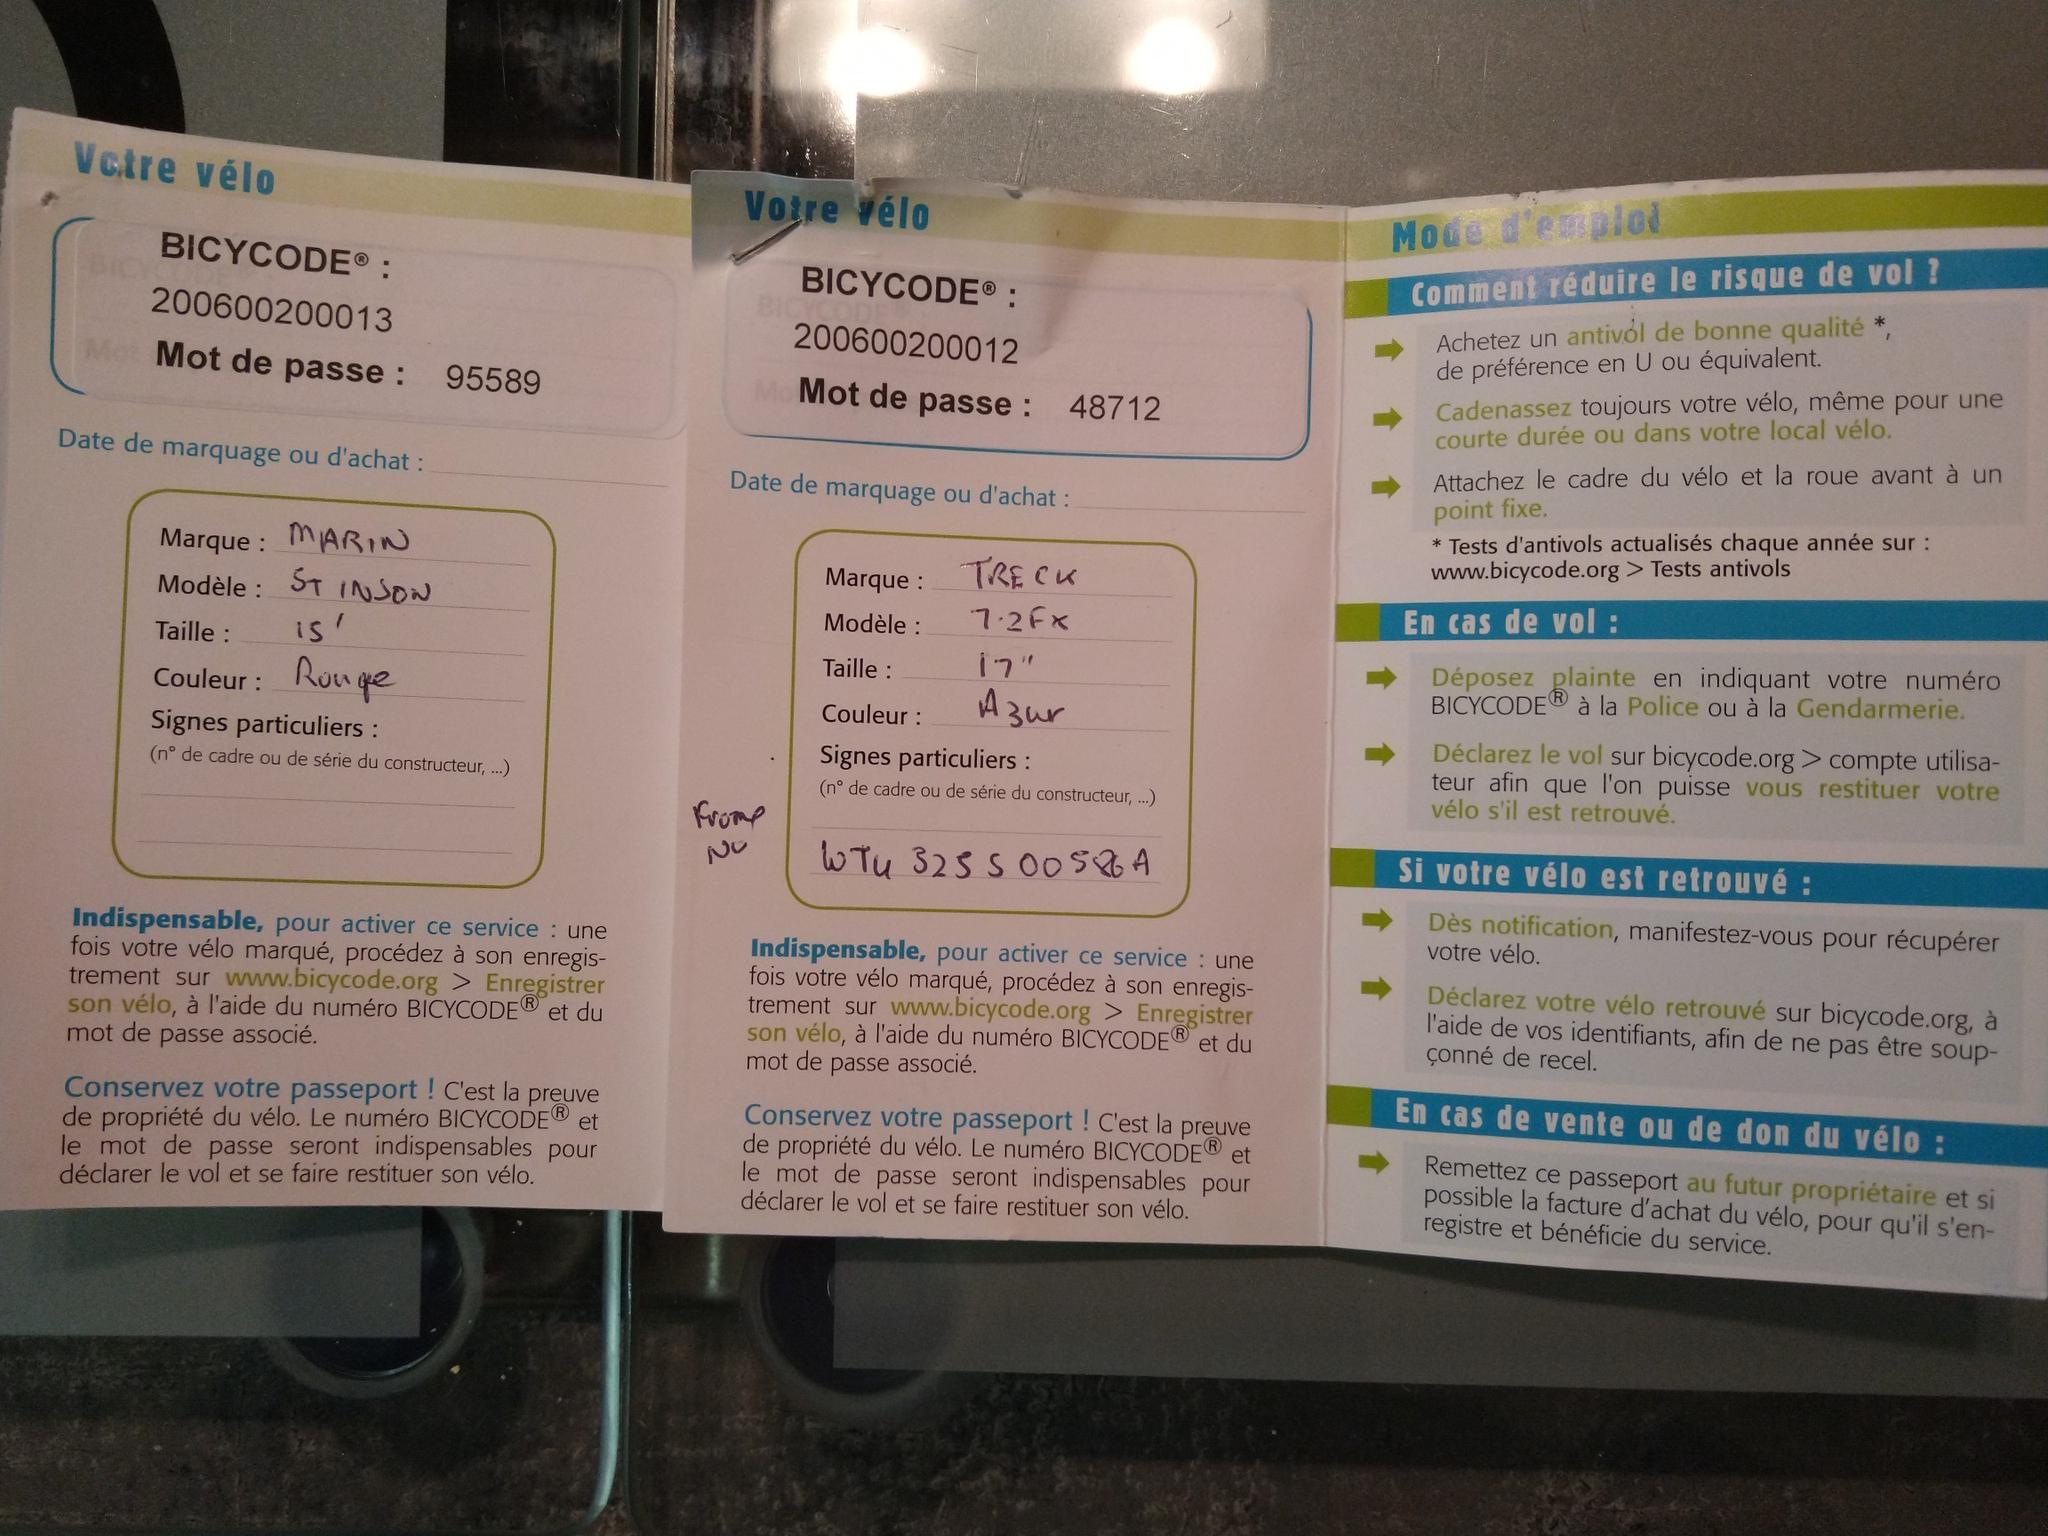 Votre vélo
BICYCODE® :
200600200013
Mot de passe : 95589
Date de marquage ou d'achat :
Marque : MARIN
Modèle : STINSON
Taille : 15'
Couleur : Rouge
Signes particuliers :
(n° de cadre ou de série du constructeur, ...)
Indispensable, pour activer ce service : une
fois votre vélo marqué, procédez à son enregis-
trement sur www.bicycode.org > Enregistrer
son vélo, à l'aide du numéro BICYCODE® et du
mot de passe associé.
Conservez votre passeport ! C'est la preuve
de propriété du vélo. Le numéro BICYCODE® et
le mot de passe seront indispensables pour
déclarer le vol et se faire restituer son vélo.
Votre vélo
BICYCODE® :
200600200012
Mot de passe : 48712
Date de marquage ou d'achat :
Marque : TRECK
Modèle : 7.2FX
Taille : 17"
Couleur : Azur
Signes particuliers :
(n° de cadre ou de série du constructeur, ...)
WTU 325 S 00586A
Indispensable, pour activer ce service : une
fois votre vélo marqué, procédez à son enregis-
trement sur www.bicycode.org > Enregistrer
son vélo, à l'aide du numéro BICYCODE® et du
mot de passe associé.
Conservez votre passeport ! C'est la preuve
de propriété du vélo. Le numéro BICYCODE® et
le mot de passe seront indispensables pour
déclarer le vol et se faire restituer son vélo.
Mode d'emploi
Comment réduire le risque de vol ?
Achetez un antivol de bonne qualité *,
de préférence en U ou équivalent.
Cadenassez toujours votre vélo, même pour une
courte durée ou dans votre local vélo.
Attachez le cadre du vélo et la roue avant à un
point fixe.
* Tests d'antivols actualisés chaque année sur :
www.bicycode.org > Tests antivols
En cas de vol :
Déposez plainte en indiquant votre numéro
BICYCODE® à la Police ou à la Gendarmerie.
Déclarez le vol sur bicycode.org > compte utilisa-
teur afin que l'on puisse vous restituer votre
vélo s'il est retrouvé.
Si votre vélo est retrouvé :
Dès notification, manifestez-vous pour récupérer
votre vélo.
Déclarez votre vélo retrouvé sur bicycode.org, à
l'aide de vos identifiants, afin de ne pas être soup-
çonné de recel.
En cas de vente ou de don du vélo :
Remettez ce passeport au futur propriétaire et si
possible la facture d'achat du vélo, pour qu'il s'en-
registre et bénéficie du service.